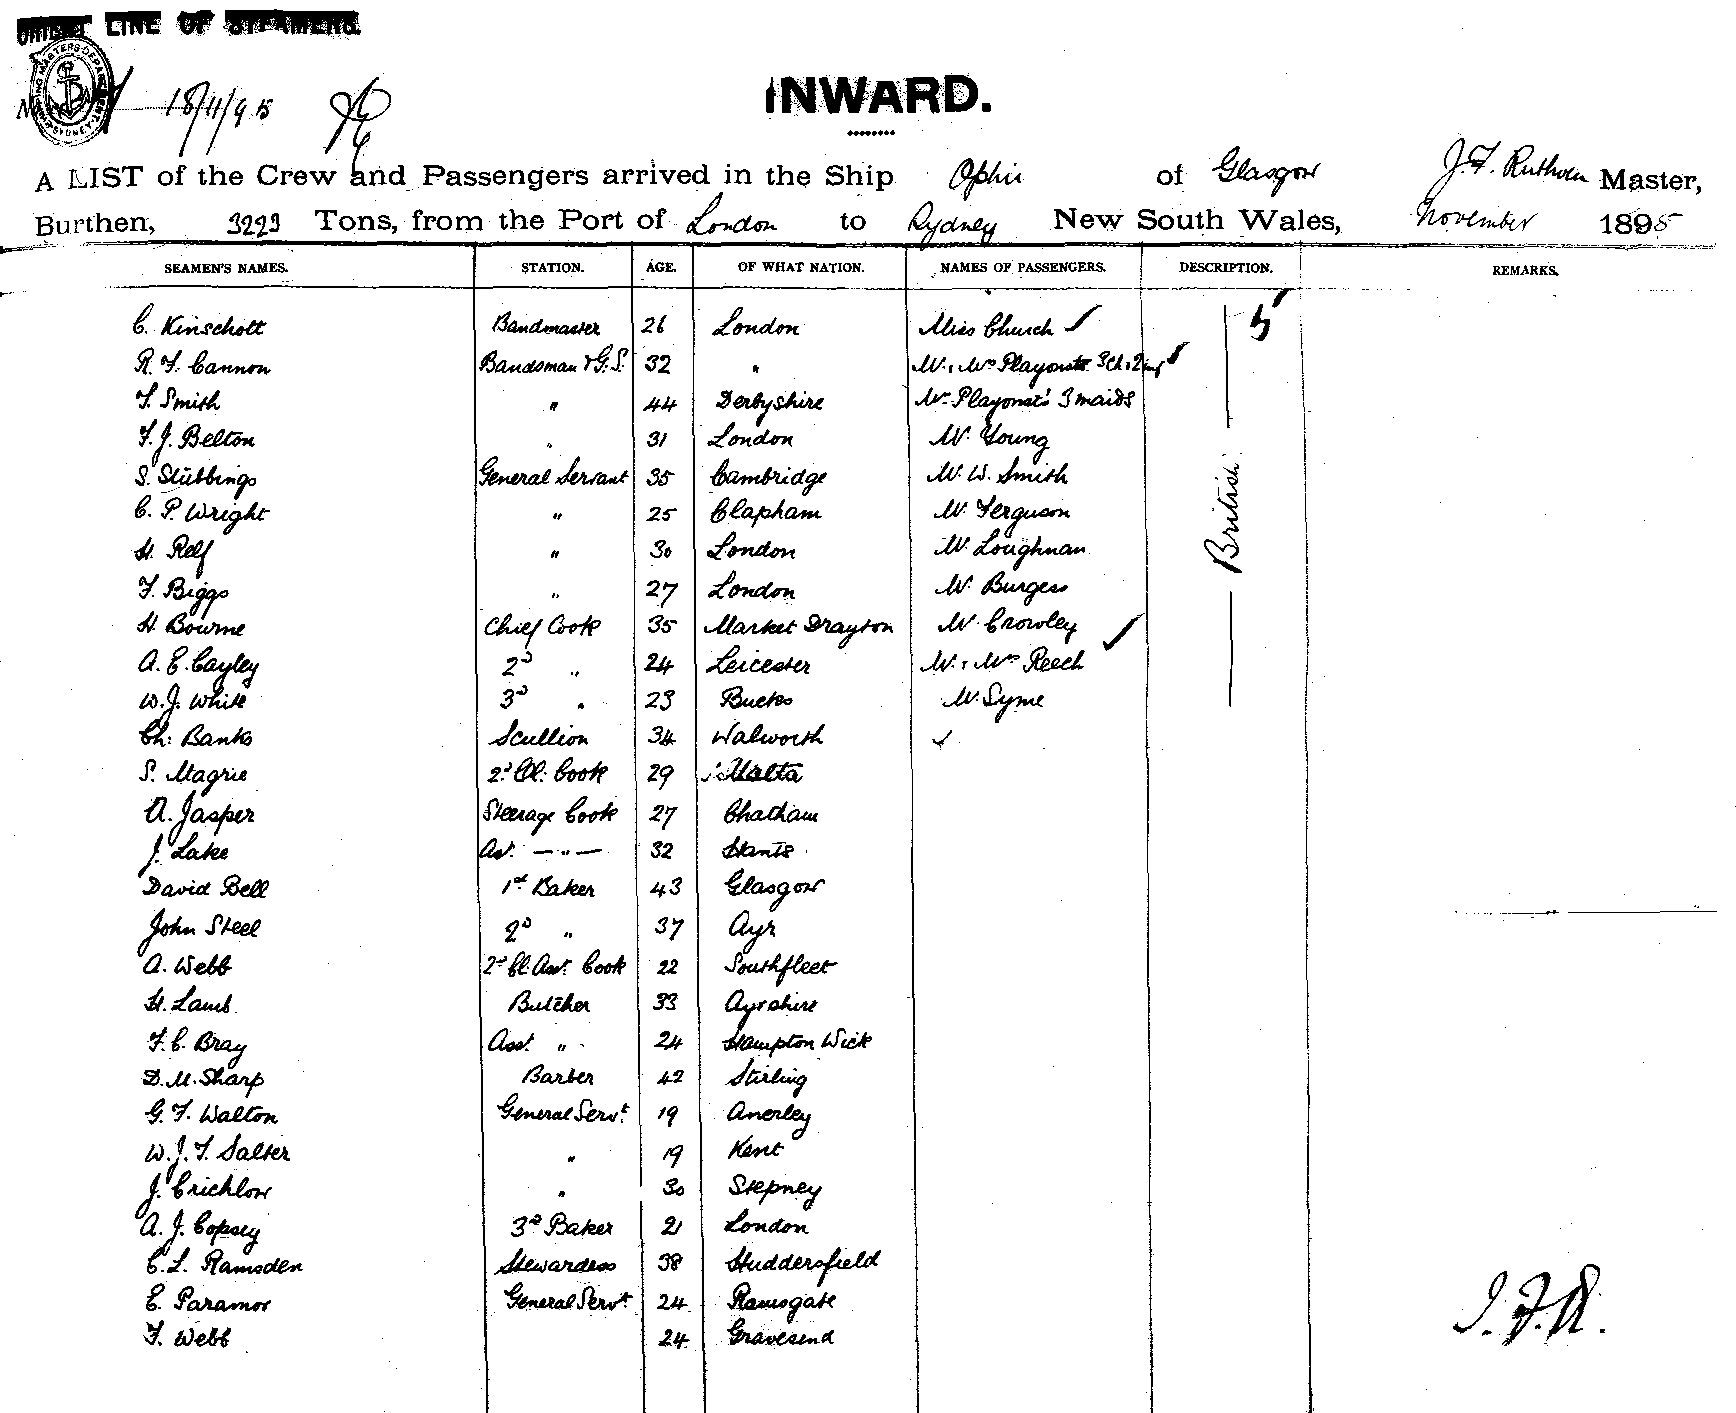 ORIENT LINE OF STEAMERS.
18/11/95
INWARD.
A LIST of the Crew and Passengers arrived in the Ship Ophir of Glasgow J. F. Ruthven Master,
Burthen, 3223 Tons, from the Port of London to Sydney New South Wales, November 1895
SEAMEN'S NAMES. STATION. AGE. OF WHAT NATION. NAMES OF PASSENGERS. DESCRIPTION. REMARKS.
C. Kinschott Bandmaster 26 London Miss Church
R. F. Cannon Bandsman & G.S. 32 " Mr. & Mrs Playoust 3 Ch. 2 inf
F. Smith " 44 Derbyshire Mrs. Playoust's 3 maids
F. J. Belton " 31 London Mr. Young
S. Stubbings General Servant 35 Cambridge Mr. W. Smith
C. P. Wright " 25 Clapham Mr. Ferguson
H. Relf " 30 London Mr. Loughnan
F. Biggs " 27 London Mr. Burgess
British
H. Bourne Chief Cook 35 Market Drayton Mr. Crowley
A. E. Cayley 2d " 24 Leicester Mr. & Mrs Reech
W. J. White 3d " 23 Bucks Mr. Syme
Ch: Banks Scullion 34 Walworth
S. Magrie 2d Cl. Cook 29 Malta
A. Jasper Steerage Cook 27 Chatham
J. Lake Ast. — " — 32 Hants
David Bell 1st Baker 43 Glasgow
John Steel 2d " 37 Ayr
A. Webb 2d Cl. Asst. Cook 22 Southfleet
H. Lamb Butcher 33 Ayrshire
F. C. Bray Asst. " 24 Hampton Wick
D. M. Sharp Barber 42 Stirling
G. F. Walton General Servt. 19 Anerley
W. J. F. Salter " 19 Kent
J. Crichlow " 30 Stepney
A. J. Copsey 3d Baker 21 London
C. L. Ramsden Stewardess 38 Huddersfield
E. Paramor General Servt. 24 Ramsgate
F. Webb 24 Gravesend
J. F. R.